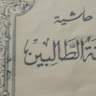 حاشية
ة الطالبين